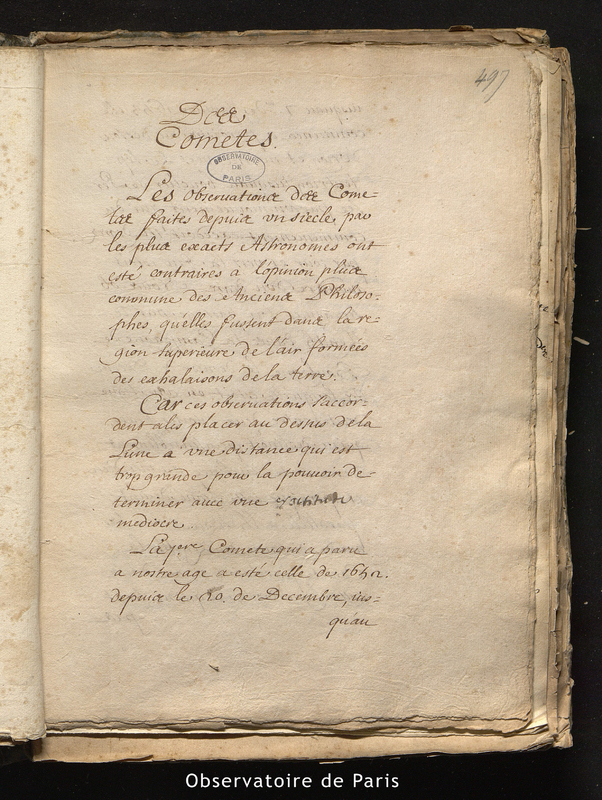 497
Des
Cometes.
OBSERVATOIRE
DE
PARIS
Les observations des Come=
tes faites depuis un siecle, par
les plus exacts Astronomes ont
esté contraires a l'opinion plus
commune des Anciens Philoso=
phes, qu'elles fussent dans la re=
gion superieure de l'air formées
des exhalaisons de la terre.
Car ces observations s'accor=
dent a les placer au dessus de la
Lune a une distance qui est
trop grande pour la pouvoir de=
terminer avec une
mediocre
La 1ere Comete qui a paru
a nostre age a esté celle de 1652.
depuis le 20. de Decembre, ius=
qu'au
Observatoire de Paris